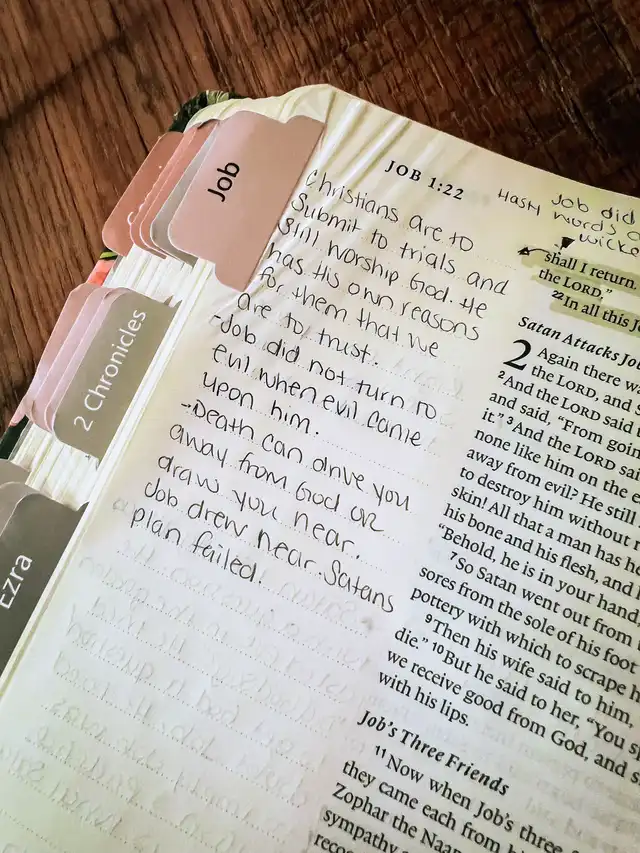 Job
2 Chronicles
Ezra
JOB 1:22
Christians are to
submit to trials and
still worship God. He
has His own reasons
for them that we
are to trust.
-Job did not turn to
evil when evil came
upon him.
-Death can drive you
away from God or
draw you near.
Job drew near. Satans
plan failed!
Job did
Hasty words
wicke
shall I return.
the LORD."
22 In all this J
Satan Attacks Jo
2 Again there wa
the LORD, and
2 And the LORD said t
and said, "From goin
it." 3 And the LORD sa
none like him on the e
away from evil? He still
to destroy him without r
skin! All that a man has he
his bone and his flesh, and
"Behold, he is in your hand,
7 So Satan went out from
sores from the sole of his foot
pottery with which to scrape h
9 Then his wife said to him,
die." 10 But he said to her, "You s
we receive good from God, and s
with his lips.
Job's Three Friends
11 Now when Job's three
they came each from
Zophar the Naam
sympathy